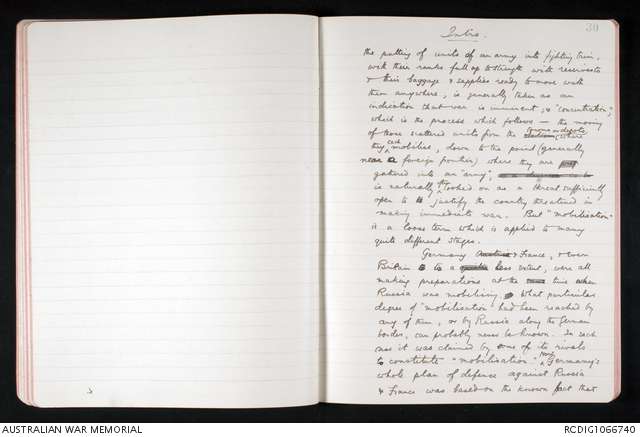 30
Intro.
the putting of units of an army into fighting trim,
with their ranks full up to strength with reservists
& their baggage & supplies ready to move with
them anywhere, is generally taken as an
indication that war is imminent; & "concentration",
which is the process which follows — the moving
of those scattered units from the where
they mobilise, down to the point (generally
near a foreign frontier) where they are
gathered into an "army",
is naturally looked on as a threat sufficiently
open to justify the country threatened in
making immediate war. But "mobilisation"
is a loose term which is applied to many
quite different stages.
Germany & France, & even
Britain to a less extent, were all
making preparations at the time when
Russia was mobilising. What particular
degree of "mobilisation" had been reached by
any of them, or by Russia along the German
border, can probably never be known. In each
case it was claimed by some of its rivals
to constitute "mobilisation". Now Germany's
whole plan of defence against Russia
& France was based on the known fact that
AUSTRALIAN WAR MEMORIAL
RCDIG1066740